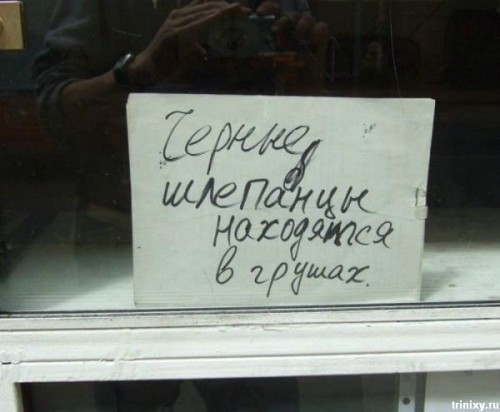 Черные
шлепанцы
находятся
в грушах.
trinixy.ru